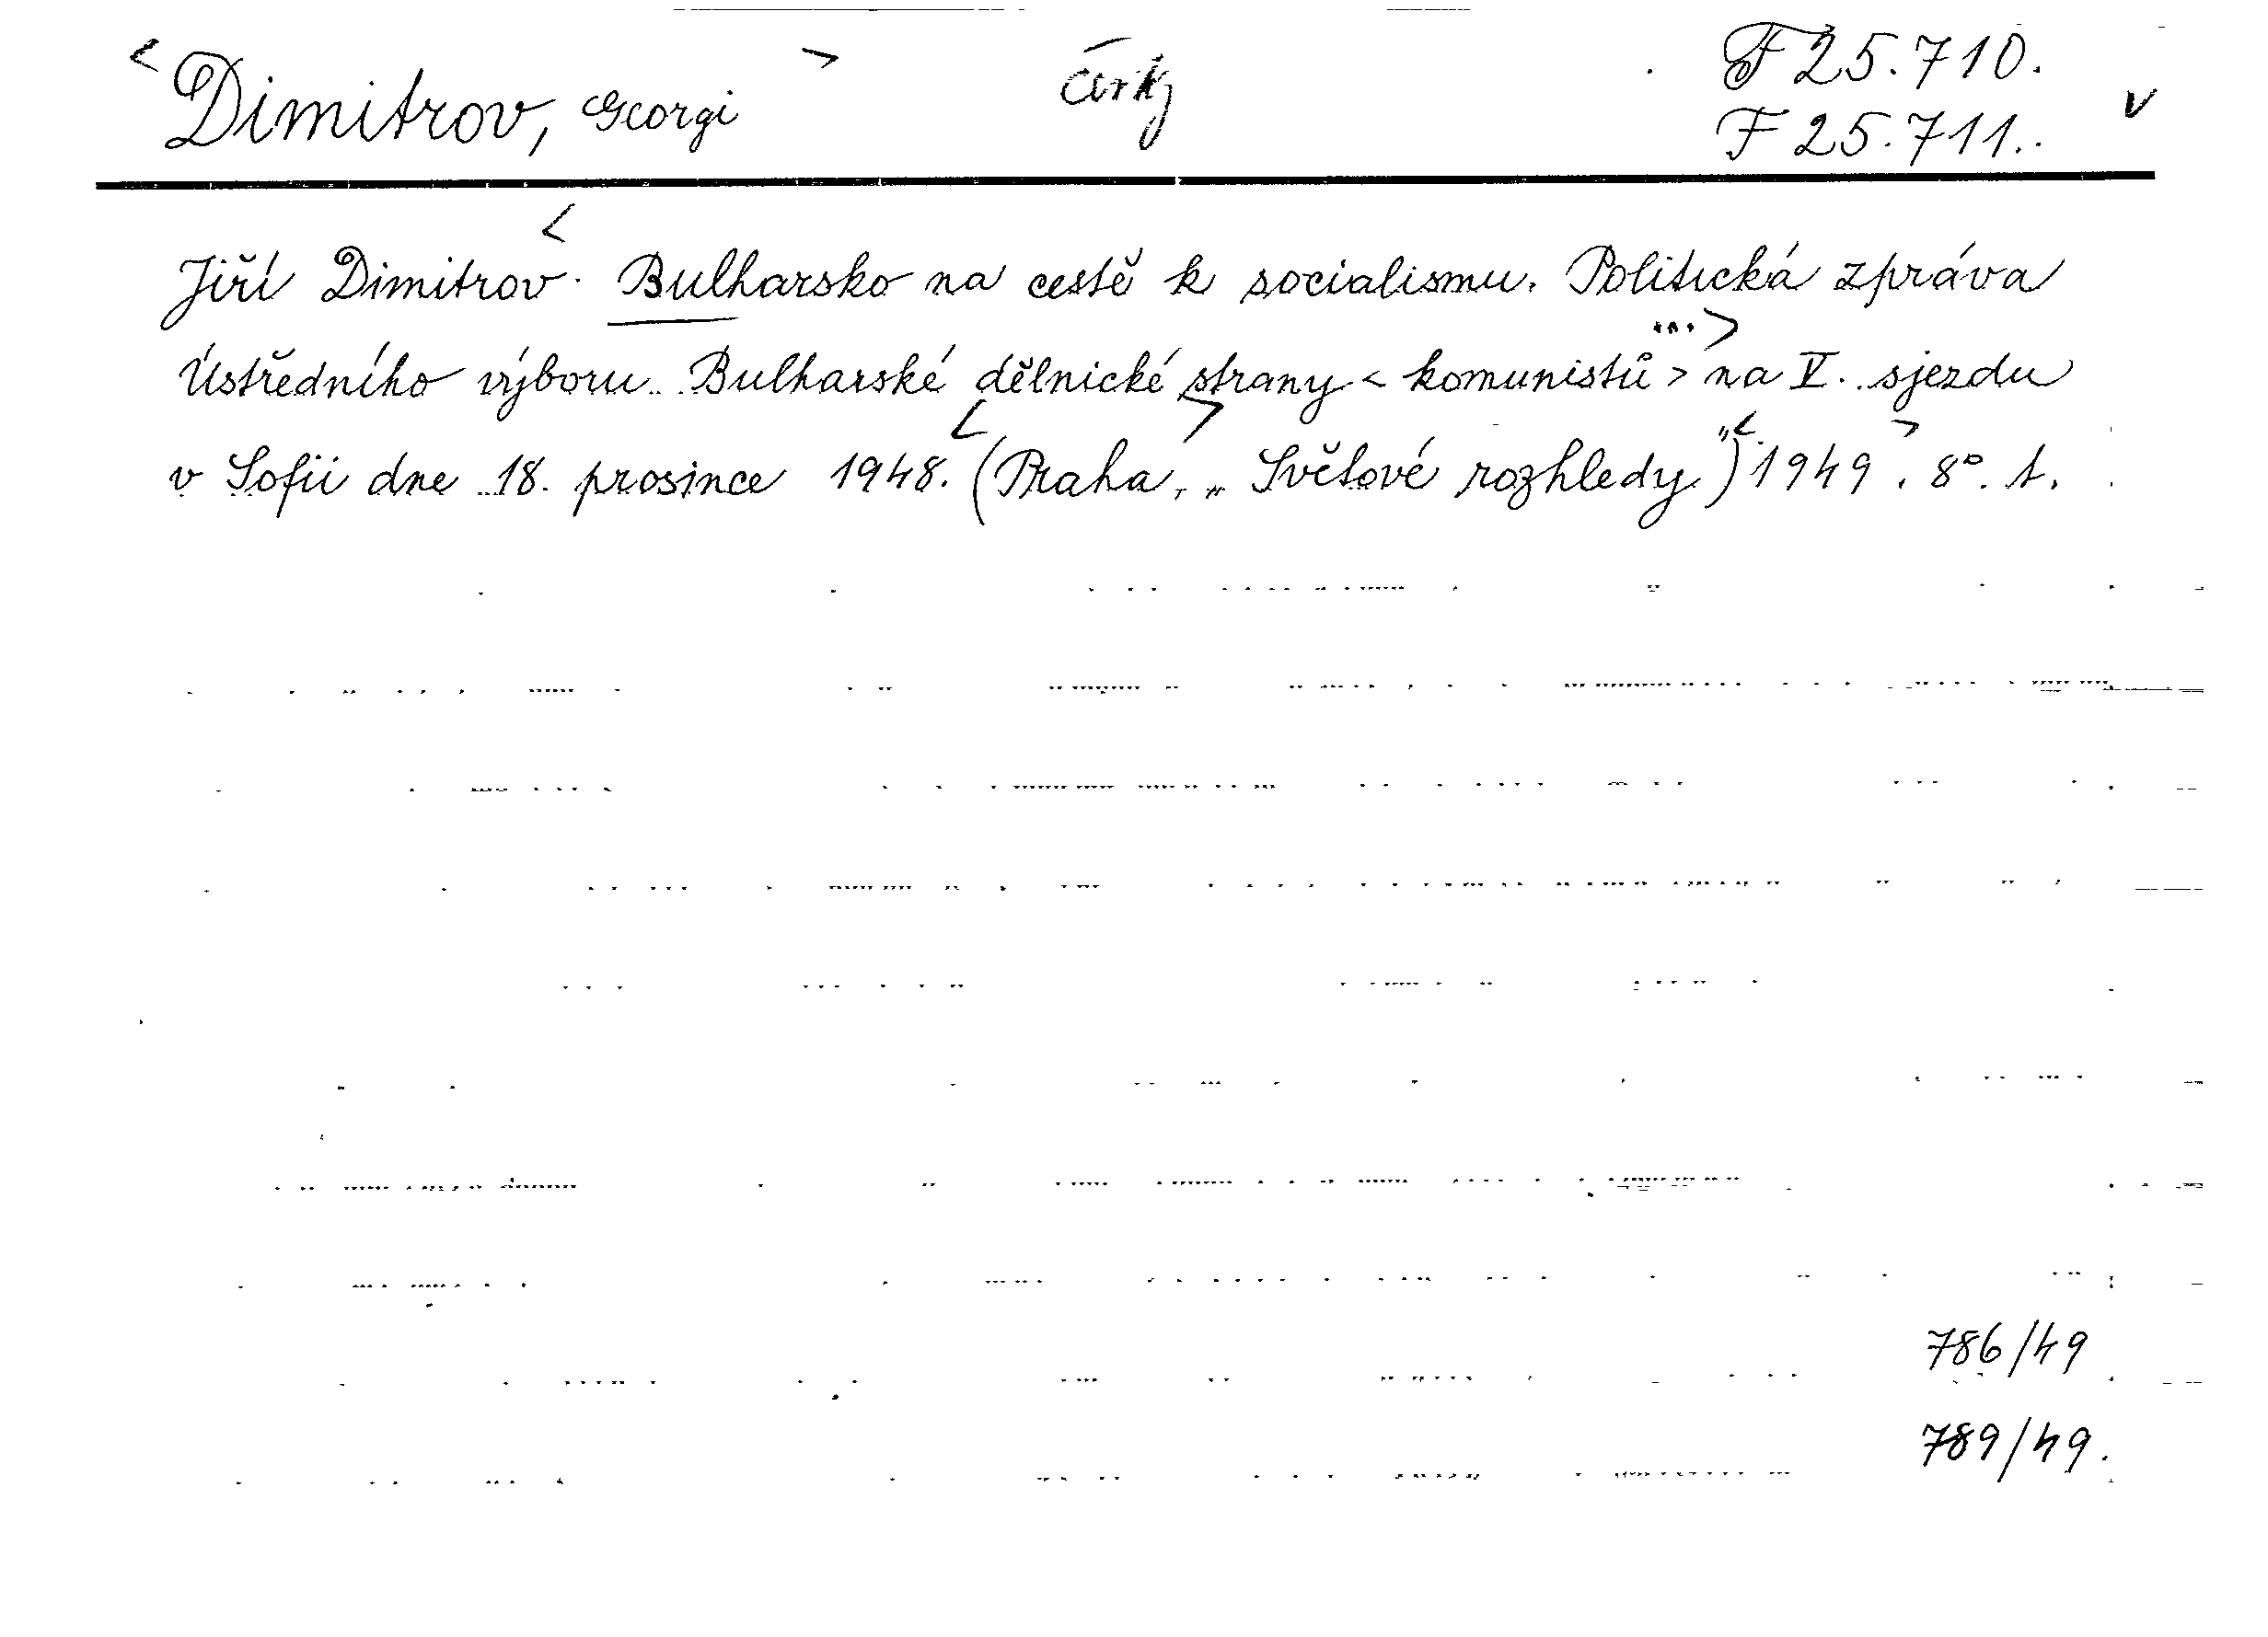 < Dimitrov, Georgi > F 25.710.
F 25.711.. v
Jiří Dimitrov. < Bulharsko na cestě k socialismu. Politická zpráva
Ústředního výboru Bulharské dělnické strany < komunistů > ... > na V. sjezdu
v Sofii dne 18. prosince 1948. (< Praha, > „Světové rozhledy") < 1949 >. 8°. t.
786/49
789/49.